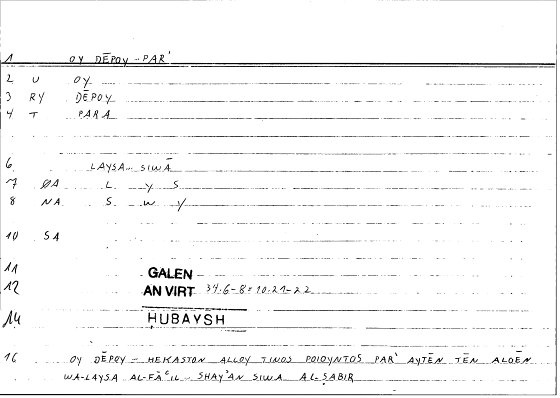 1 OY DĒPOY – PAR'
2 U OY
3 RY DĒPOY
4 T PARA
6 LAYSA – SIWĀ
7 ØA L y S
8 NA S w y
10 SA
11 GALEN
12 AN VIRT 34.6-8 = 10.21-22
14 ḤUBAYSH
16 OY DĒPOY – HEKASTON ALLOY TINOS POIOYNTOS PAR' AYTĒN TĒN ALOĒN
WA-LAYSA AL-FĀʿIL – SHAYʾAN SIWĀ AL-ṢABIR